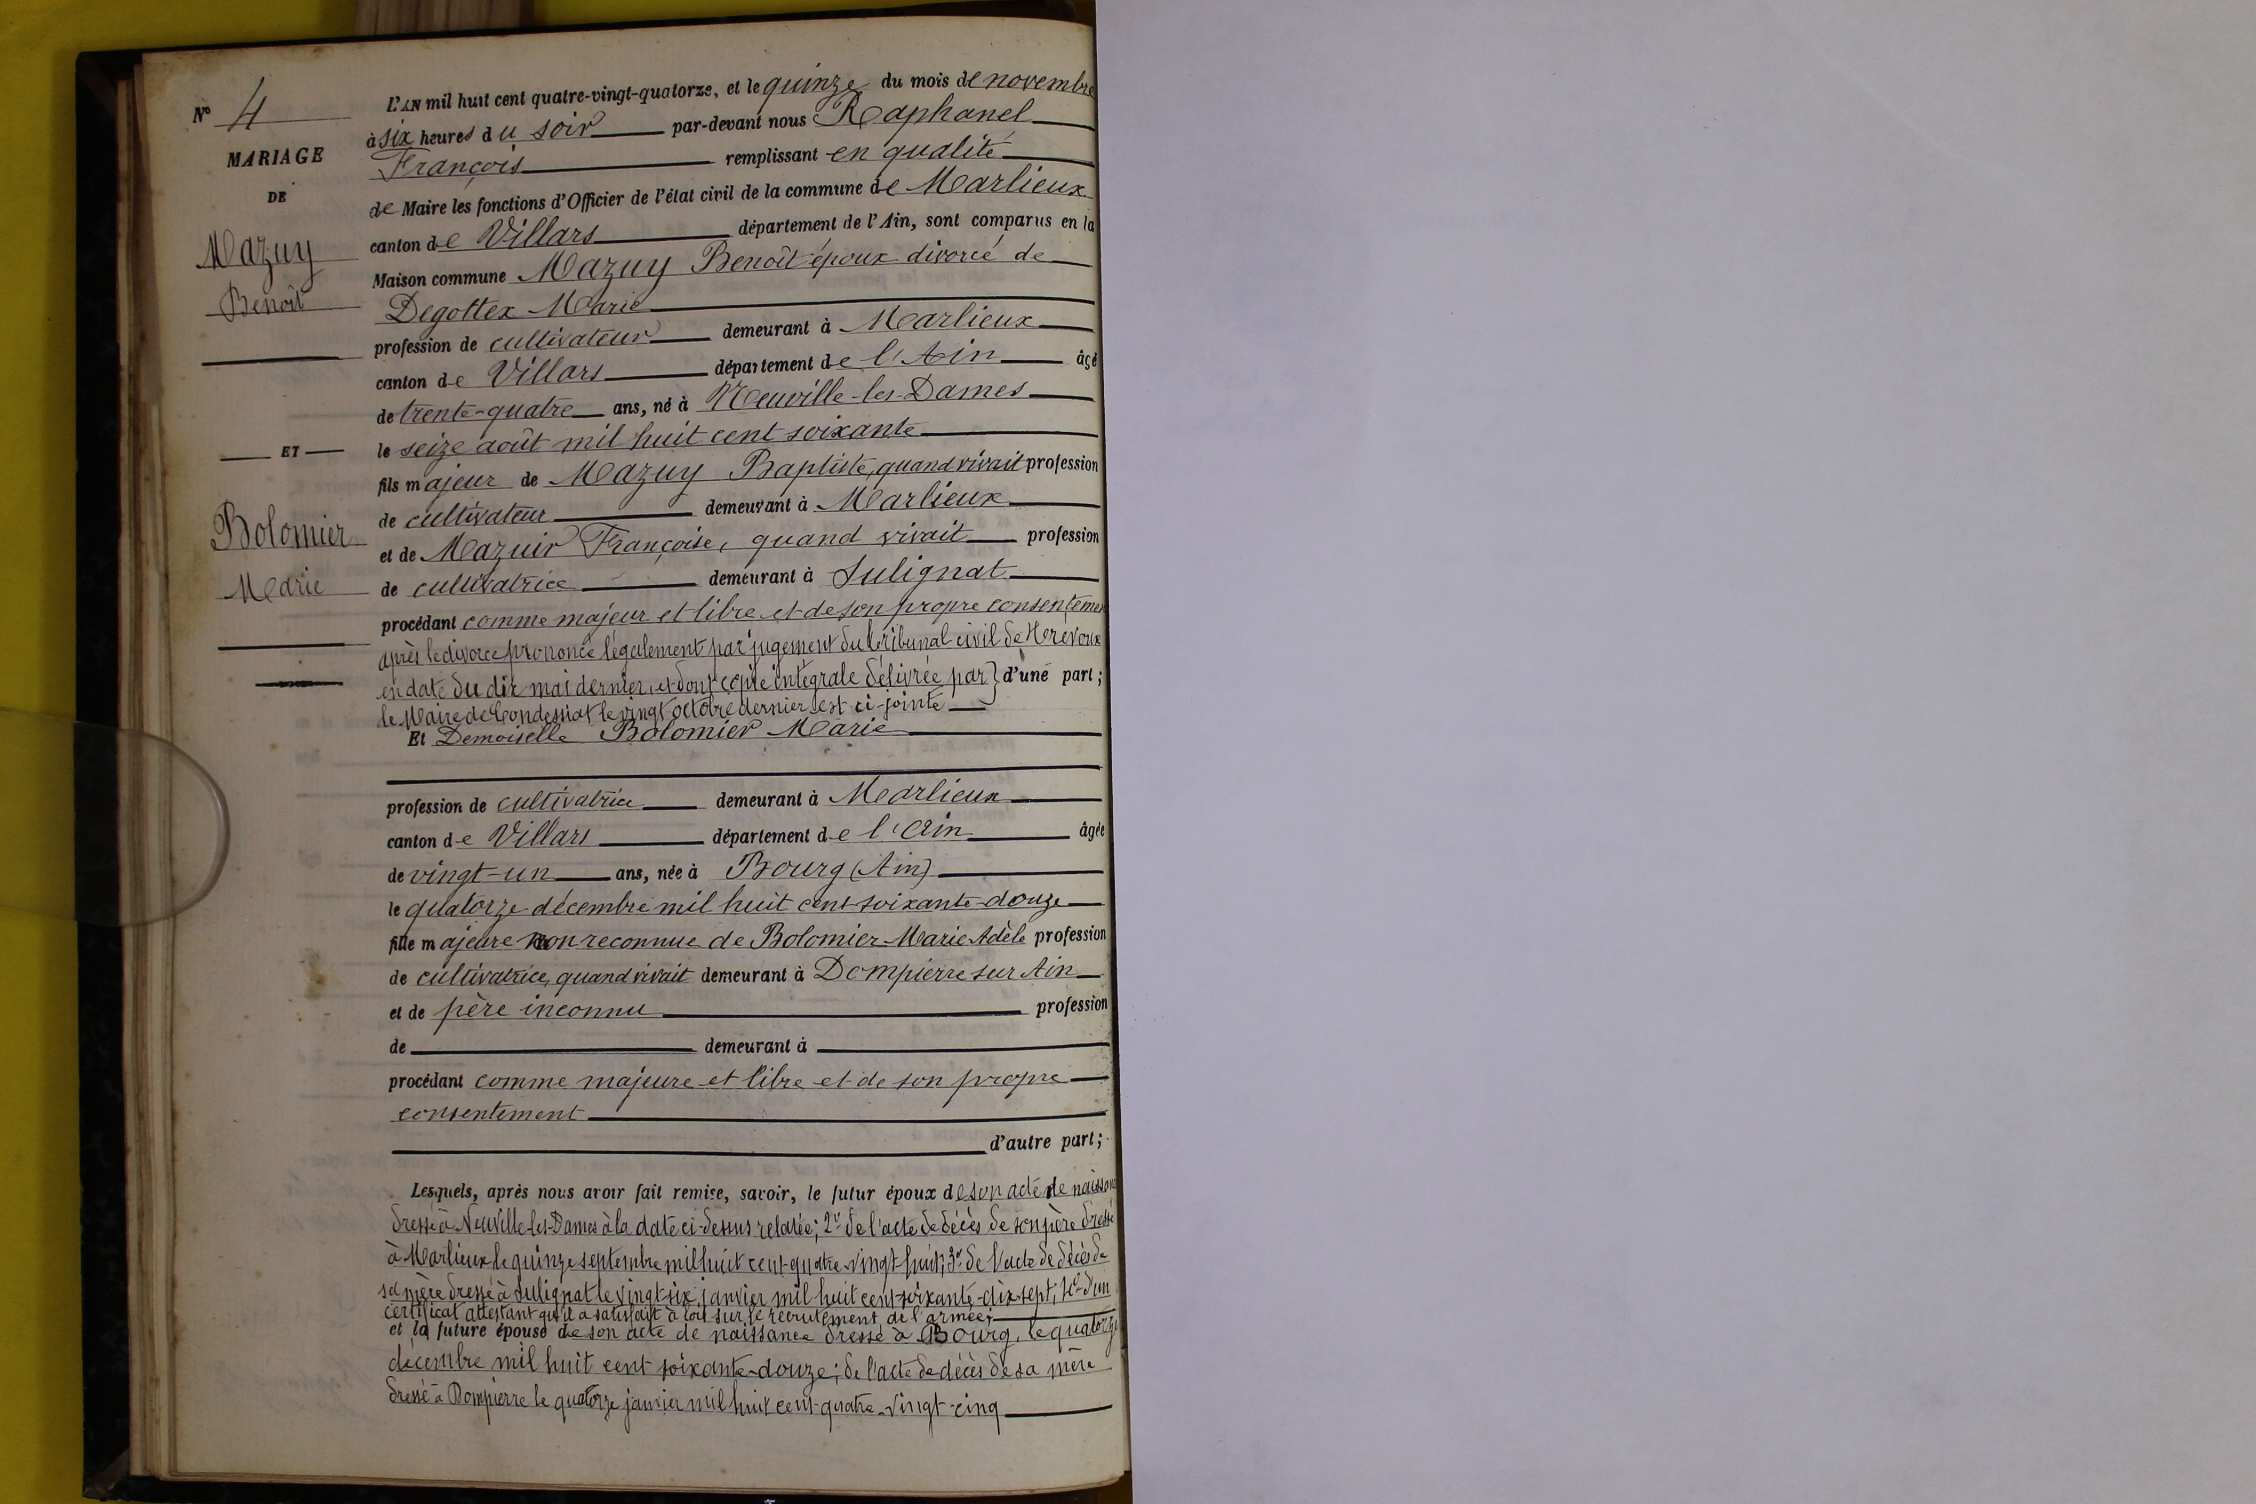 N° 4
MARIAGE
DE
Mazuy
Benoît
ET
Bolomier
Marie
L'AN mil huit cent quatre-vingt-quatorze, et le quinze du mois de novembre
à six heures du soir par-devant nous Raphanel
François remplissant en qualité
de Maire les fonctions d'Officier de l'état civil de la commune de Marlieux
canton de Villars département de l'Ain, sont comparus en la
Maison commune Mazuy Benoît époux divorcé de
Degottex Marie
profession de cultivateur demeurant à Marlieux
canton de Villars département de l'Ain âgé
de trente-quatre ans, né à Neuville-les-Dames
le seize août mil huit cent soixante
fils majeur de Mazuy Baptiste, quand vivait profession
de cultivateur demeurant à Marlieux
et de Mazuir Françoise, quand vivait profession
de cultivatrice demeurant à Sulignat
procédant comme majeur et libre et de son propre consentemen
après le divorce prononcé légalement par jugement du tribunal civil de Trévoux
en date du dix mai dernier, et dont copie intégrale délivrée par } d'une part ;
le Maire de Condessiat le vingt octobre dernier est ci-jointe
Et Demoiselle Bolomier Marie
profession de cultivatrice demeurant à Marlieux
canton de Villars département de l'Ain âgée
de vingt-un ans, née à Bourg (Ain)
le quatorze décembre mil huit cent soixante-douze
fille majeure non reconnue de Bolomier Marie Adèle profession
de cultivatrice, quand vivait demeurant à Dompierre sur Ain
et de père inconnu profession
de demeurant à
procédant comme majeure et libre et de son propre
consentement
d'autre part ;
Lesquels, après nous avoir fait remise, savoir, le futur époux de son acte de naissan
dressé à Neuville-les-Dames à la date ci-dessus relatée ; 2° de l'acte de décès de son père dressé
à Marlieux le quinze septembre mil huit cent quatre-vingt-huit ; 3° de l'acte de décès de
sa mère dressé à Sulignat le vingt-six janvier mil huit cent soixante-dix-sept ; 4° d'un
certificat attestant qu'il a satisfait à loi sur le recrutement de l'armée ;
et la future épouse de son acte de naissance dressé à Bourg, le quatorze
décembre mil huit cent soixante-douze ; de l'acte de décès de sa mère
dressé à Dompierre le quatorze janvier mil huit cent-quatre-vingt-cinq